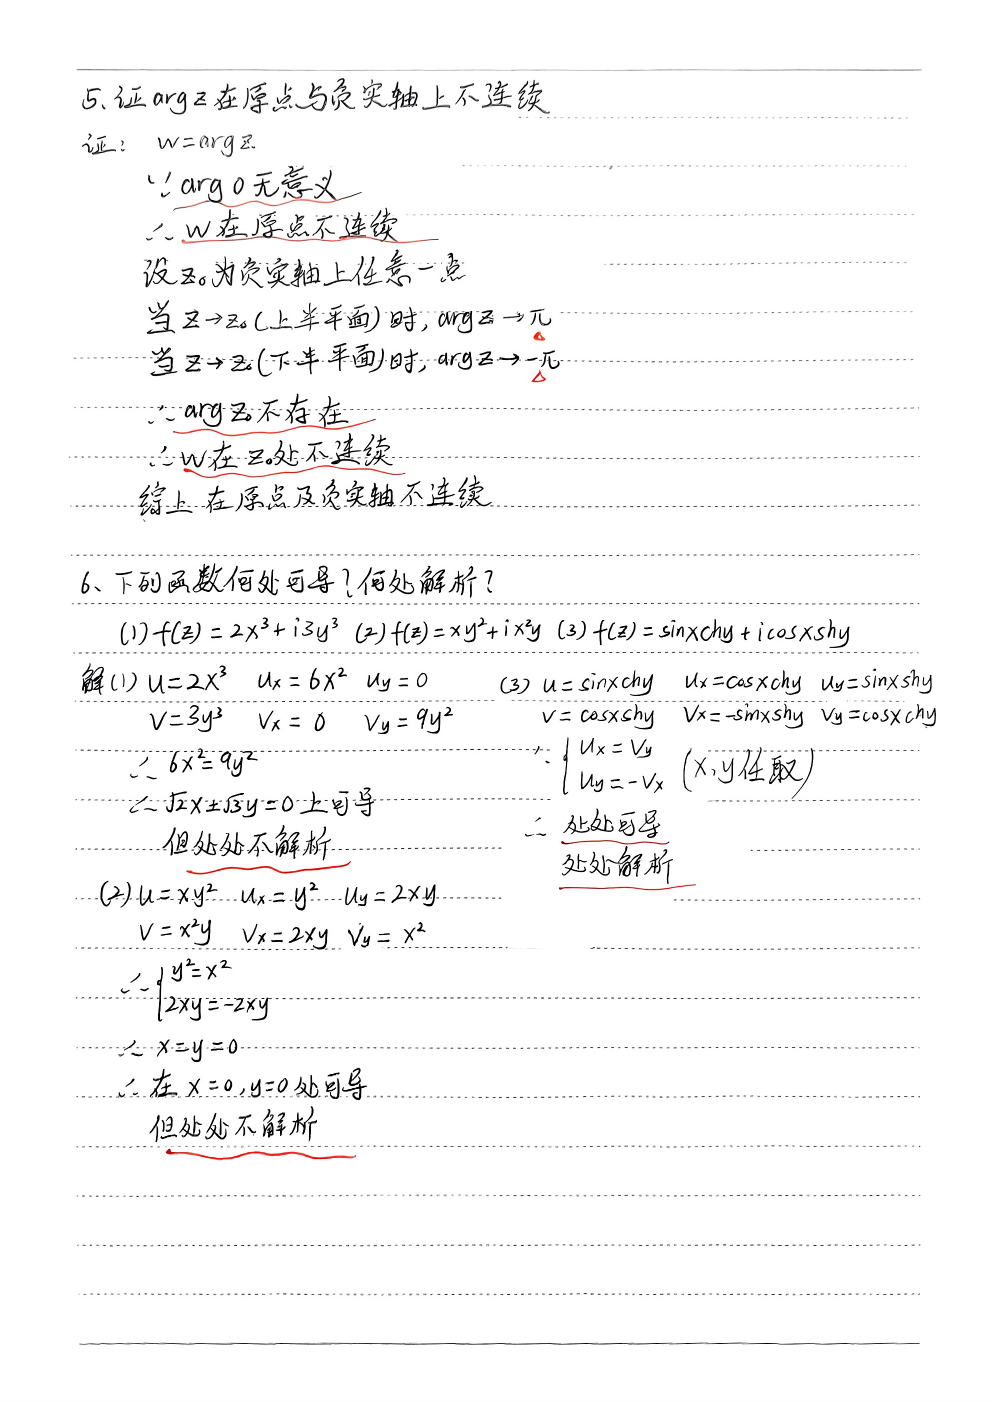 5、证arg z在原点与负实轴上不连续
证: w=arg z
∵ arg 0 无意义
∴ w在原点不连续
设z₀为负实轴上任意一点
当z→z₀(上半平面)时, arg z→π
当z→z₀(下半平面)时, arg z→-π
∴ arg z₀不存在
∴ w在z₀处不连续
综上 在原点及负实轴不连续
6、下列函数何处可导?何处解析?
(1) f(z)=2x³+i3y³ (2) f(z)=xy²+ix²y (3) f(z)=sinxchy+icosxshy
解(1) u=2x³ uₓ=6x² u_y=0
v=3y³ vₓ=0 v_y=9y²
∴ 6x²=9y²
∴ √2x±√3y=0上可导
但处处不解析
(2) u=xy² uₓ=y² u_y=2xy
v=x²y vₓ=2xy v_y=x²
∴ { y²=x²
2xy=-2xy
∴ x=y=0
∴ 在x=0,y=0处可导
但处处不解析
(3) u=sinxchy uₓ=cosxchy u_y=sinxshy
v=cosxshy vₓ=-sinxshy v_y=cosxchy
∵ { uₓ=v_y
u_y=-vₓ (x,y任取)
∴ 处处可导
处处解析